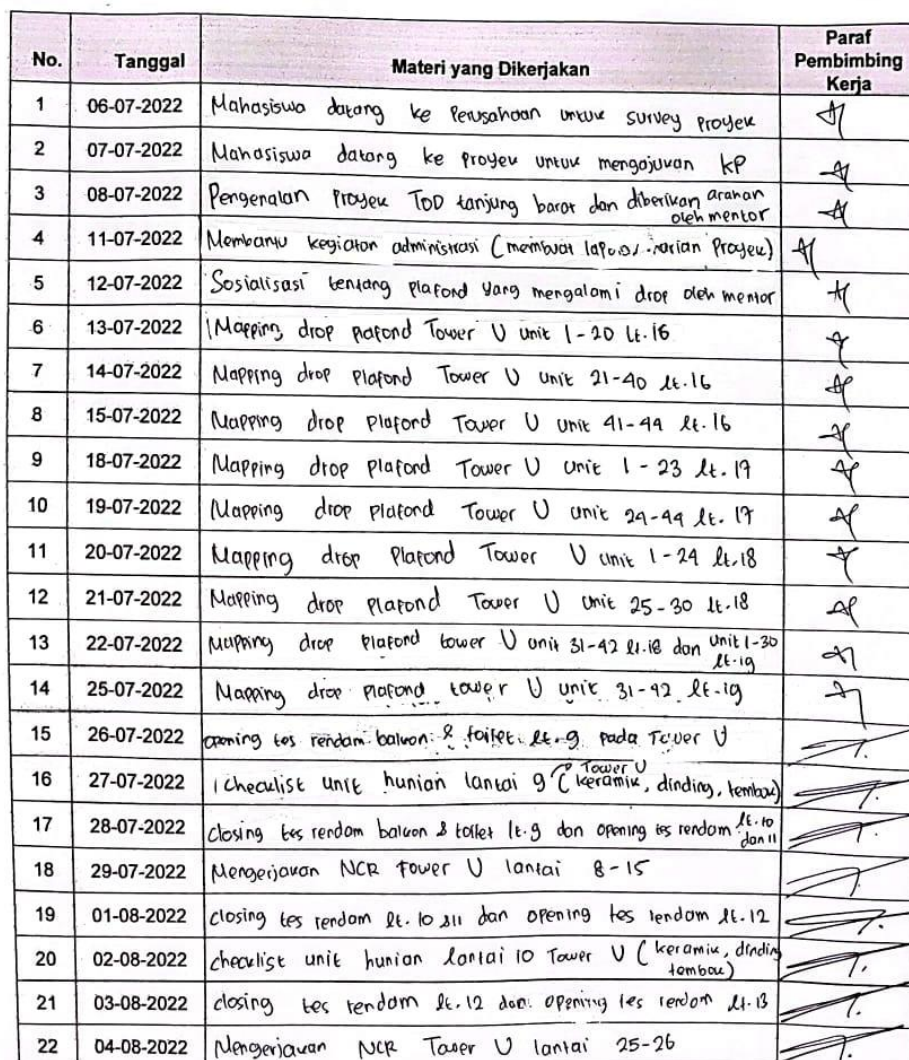 No. Tanggal Materi yang Dikerjakan Paraf Pembimbing Kerja
1 06-07-2022 Mahasiswa datang ke Perusahaan untuk survey proyek
2 07-07-2022 Mahasiswa datang ke proyek untuk mengajukan KP
3 08-07-2022 Pengenalan Proyek TOD tanjung barat dan diberikan arahan oleh mentor
4 11-07-2022 Membantu kegiatan administrasi (membuat harian Proyek)
5 12-07-2022 Sosialisasi tentang plafond yang mengalami drop oleh mentor
6 13-07-2022 Mapping drop plafond Tower U unit 1-20 lt.16
7 14-07-2022 Mapping drop plafond Tower U unit 21-40 lt.16
8 15-07-2022 Mapping drop plafond Tower U unit 41-44 lt.16
9 18-07-2022 Mapping drop plafond Tower U unit 1-23 lt.17
10 19-07-2022 Mapping drop plafond Tower U unit 24-44 lt.17
11 20-07-2022 Mapping drop plafond Tower U unit 1-24 lt.18
12 21-07-2022 Mapping drop plafond Tower U unit 25-30 lt.18
13 22-07-2022 Mapping drop plafond tower U unit 31-42 lt.18 dan unit 1-30 lt.19
14 25-07-2022 Mapping drop plafond tower U unit 31-42 lt.19
15 26-07-2022 opening tes rendam balkon & toilet lt.9 pada Tower U
16 27-07-2022 checklist unit hunian lantai 9 Tower U (keramik, dinding, tembok)
17 28-07-2022 closing tes rendam balkon & toilet lt.9 dan opening tes rendam lt.10 dan 11
18 29-07-2022 Mengerjakan NCR Tower U lantai 8-15
19 01-08-2022 closing tes rendam lt.10 &11 dan opening tes rendam lt.12
20 02-08-2022 checklist unit hunian lantai 10 Tower U (keramik, dinding tembok)
21 03-08-2022 closing tes rendam lt.12 dan opening tes rendam lt.13
22 04-08-2022 Mengerjakan NCR Tower U lantai 25-26